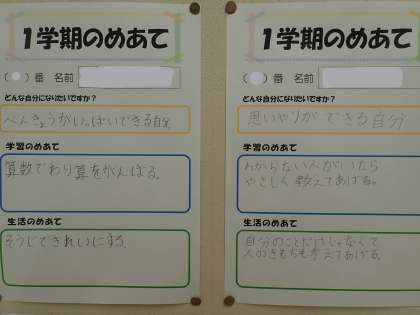 1学期のめあて
( )番 名前
どんな自分になりたいですか？
べんきょうがいっぱいできる自分
学習のめあて
算数でわり算をがんばる。
生活のめあて
そうじできれいにする。
1学期のめあて
( )番 名前
どんな自分になりたいですか？
思いやりができる自分
学習のめあて
わからない人がいたら
やさしく教えてあげる。
生活のめあて
自分のことだけじゃなくて
人のきもちも考えてあげる。